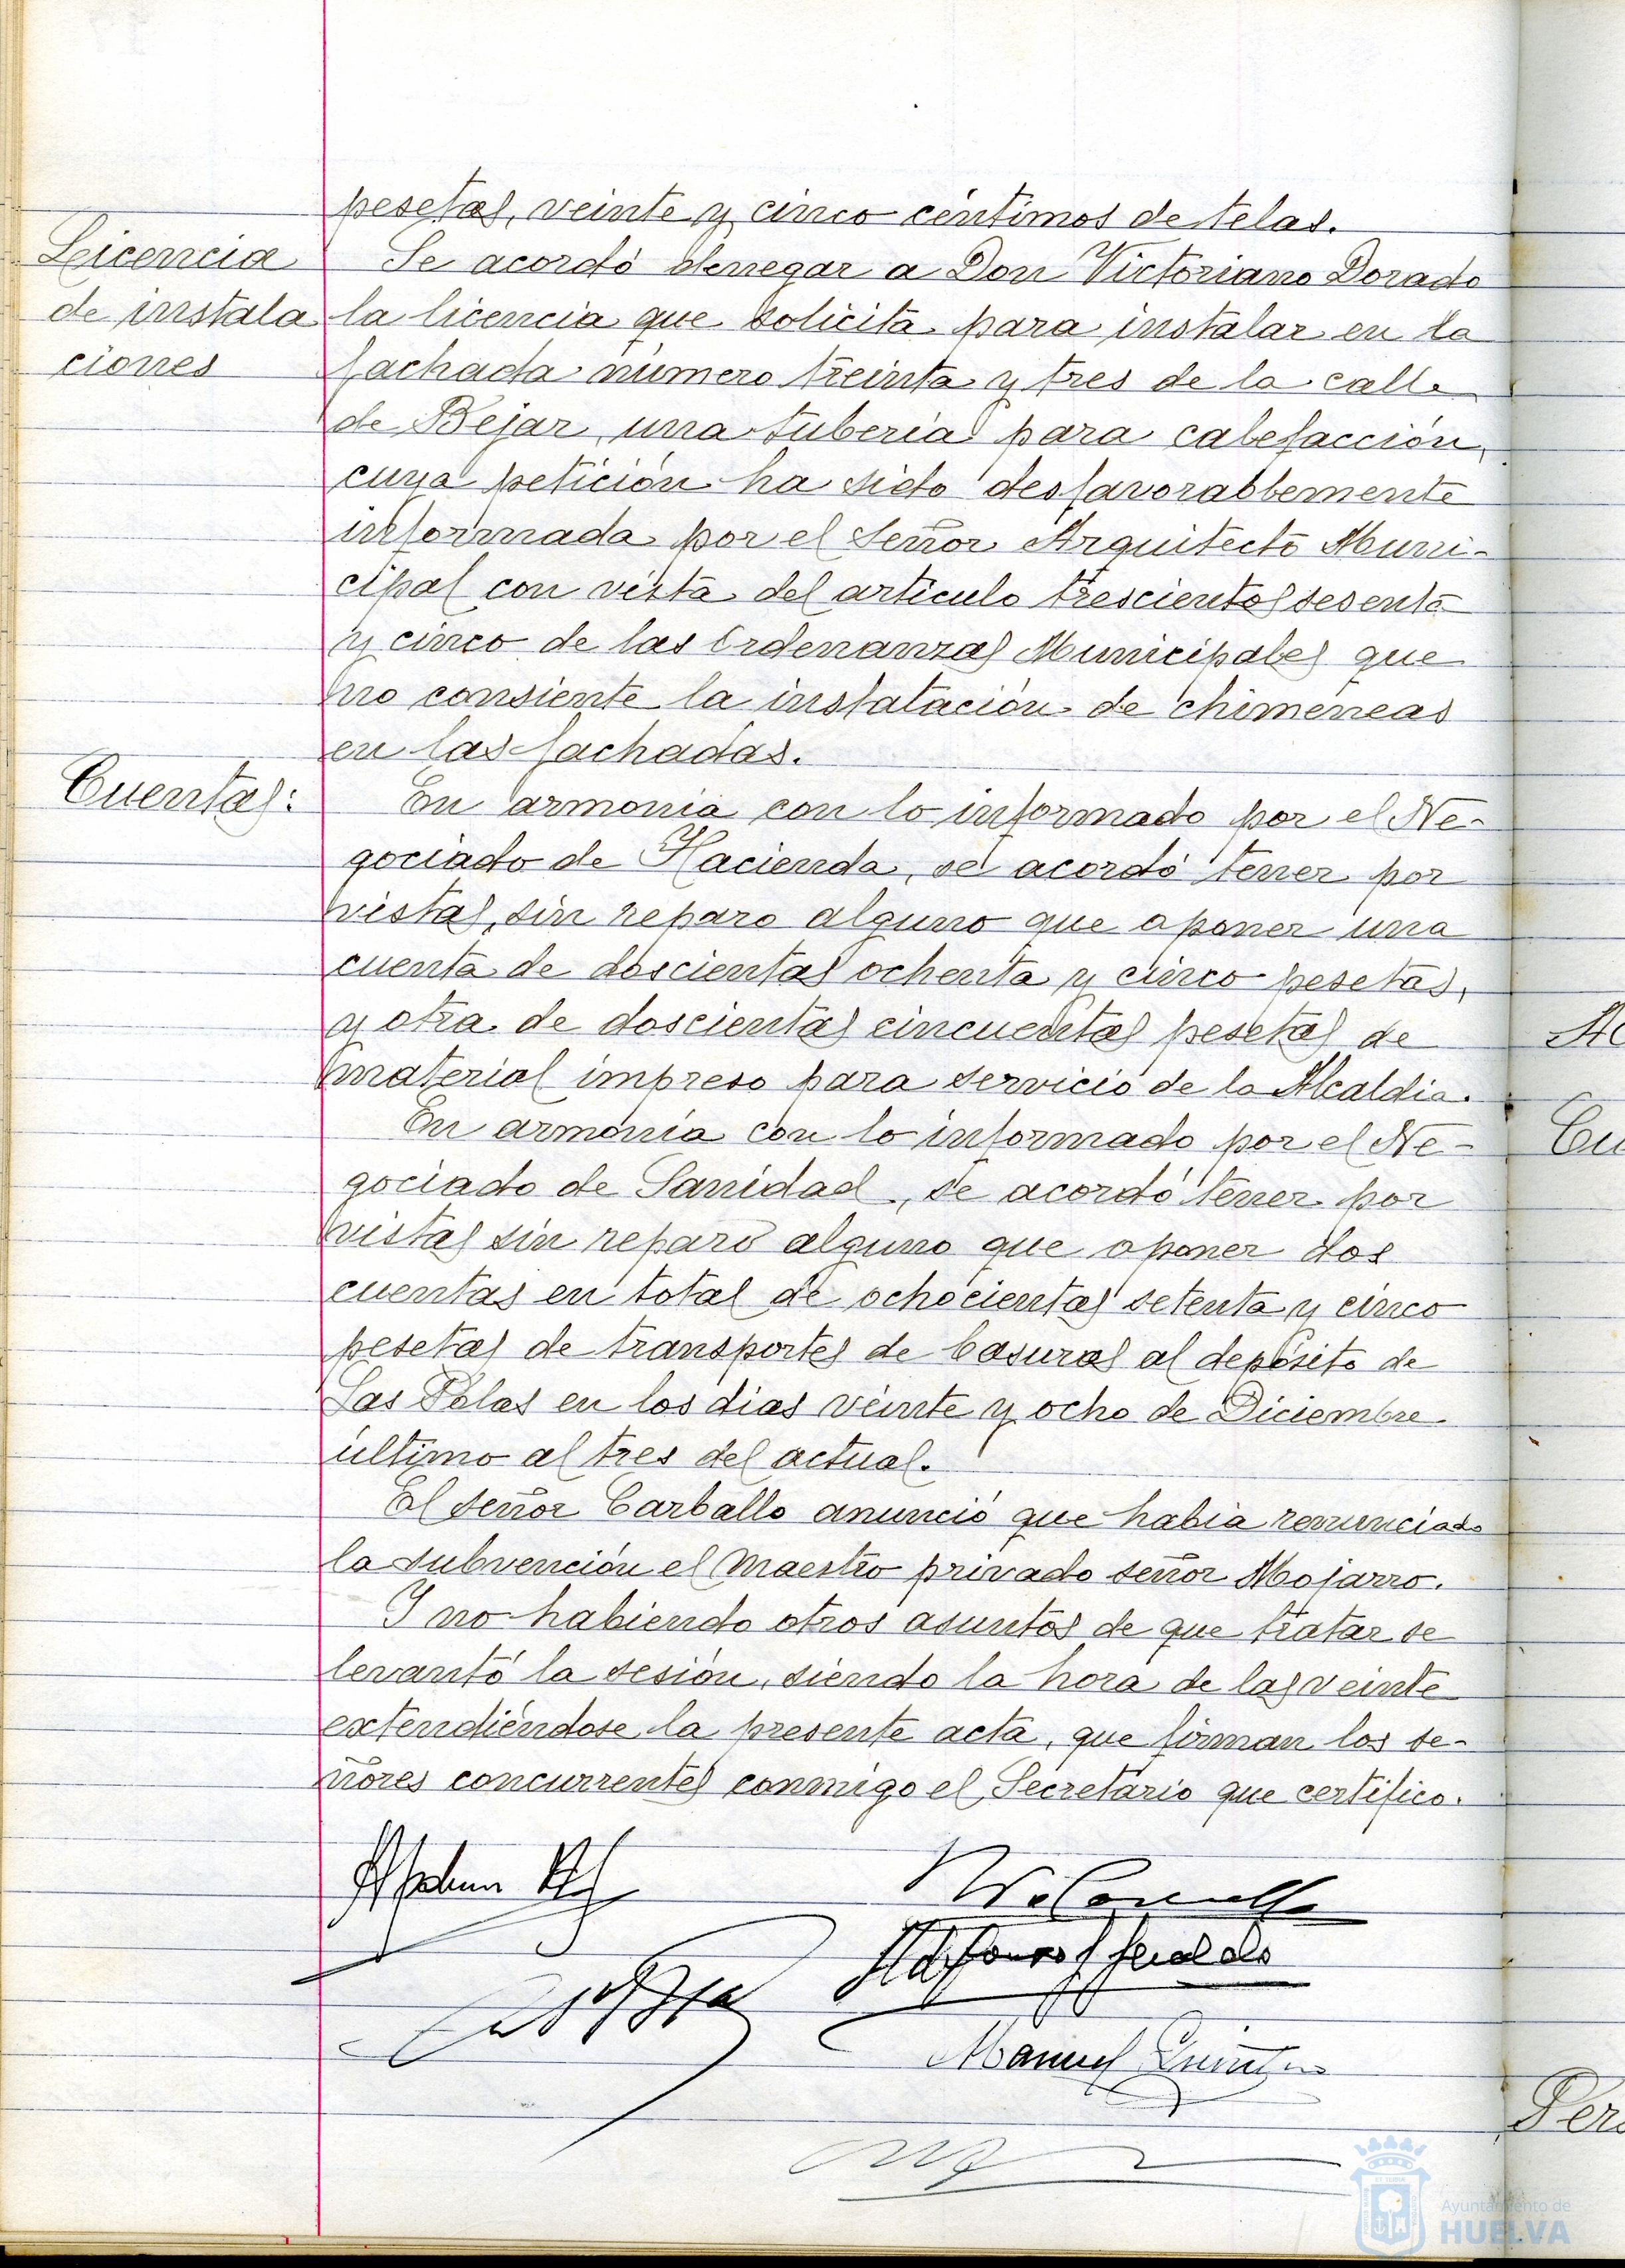 pesetas, veinte y cinco céntimos de telas.
Licencia
de instala
ciones
Se acordó denegar a Don Victoriano Dorado
la licencia que solicita para instalar en la
fachada número treinta y tres de la calle
de Bejar, una tuberia para calefacción,
cuya petición ha sido desfavorablemente
informada por el señor Arquitecto Muni-
cipal con vista del articulo trescientos sesenta
y cinco de las Ordenanzas Municipales que
no consiente la instalación de chimeneas
en las fachadas.
Cuentas:
En armonia con lo informado por el Ne-
gociado de Hacienda, se acordó tener por
vistas, sin reparo alguno que oponer una
cuenta de doscientas ochenta y cinco pesetas,
y otra de doscientas cincuentas pesetas de
material impreso para servicio de la Alcaldia.
En armonia con lo informado por el Ne-
gociado de Sanidad, se acordó tener por
vistas sin reparo alguno que oponer dos
cuentas en total de ochocientas setenta y cinco
pesetas de transportes de basuras al depósito de
Las en los dias veinte y ocho de Diciembre
último al tres del actual.
El señor Carballo anunció que habia renunciado
la subvención el Maestro privado señor Mojarro.
Y no habiendo otros asuntos de que tratar se
levantó la sesión, siendo la hora de las veinte
extendiéndose la presente acta, que firman los se-
ñores concurrentes conmigo el Secretario que certifico.
Manuel
Ac
Cu
Pers
Ayuntamiento de
HUELVA